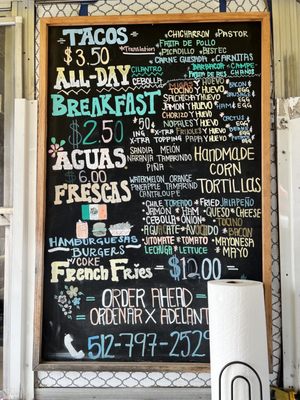 TACOS
$3.50
*Translation
*CHICHARRON *PASTOR
FAJITA DE POLLO
*PICADILLO *BISTEC
CARNE GUISADA *CARNITAS
BARBACOA
FAJITA DE RES
ALL-DAY
CILANTRO
CEBOLLA
BREAKFAST
$2.50
TOCINO Y HUEVO
SALCHICHA Y HUEVO
JAMON Y HUEVO
CHORIZO Y HUEVO
NOPALES Y HUEVO
FRIJOLES Y HUEVO
PAPA Y HUEVO
50¢
X-TRA
X-TRA TOPPING
AGUAS
$6.00
FRESCAS
SANDIA MELON
NARANJA TAMARINDO
PIÑA
WATERMELON ORANGE
PINEAPPLE TAMARIND
CANTALOUPE
HANDMADE
CORN
TORTILLAS
*CHILE TOREADO *FRIED JALAPEÑO
*JAMON *HAM *QUESO *CHEESE
*CEBOLLA *ONION *TOCINO
*AGUACATE *AVOCADO *BACON
*JITOMATE *TOMATO *MAYONESA
LECHUGA *LETTUCE *MAYO
HAMBURGUESAS
BURGERS
Y COKE
French Fries
$12.00
ORDER AHEAD
ORDENAR X ADELANT
512-797-2529